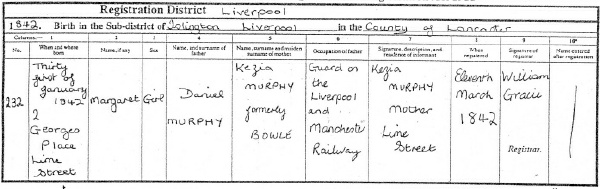 Registration District Liverpool
1842. Birth in the Sub-district of Islington Liverpool in the County of Lancaster
Columns:- 1 2 3 4 5 6 7 8 9 10*
No. When and where born Name, if any Sex Name, and surname of father Name, surname and maiden surname of mother Occupation of father Signature, description, and residence of informant When registered Signature of registrar Name entered after registration
232 Thirty first of January 1842 2 Georges Place Lime Street Margaret Girl Daniel MURPHY Kezia MURPHY formerly BOWLE Guard on the Liverpool and Manchester Railway Kezia MURPHY Mother Lime Street Eleventh March 1842 William Gracie Registrar.